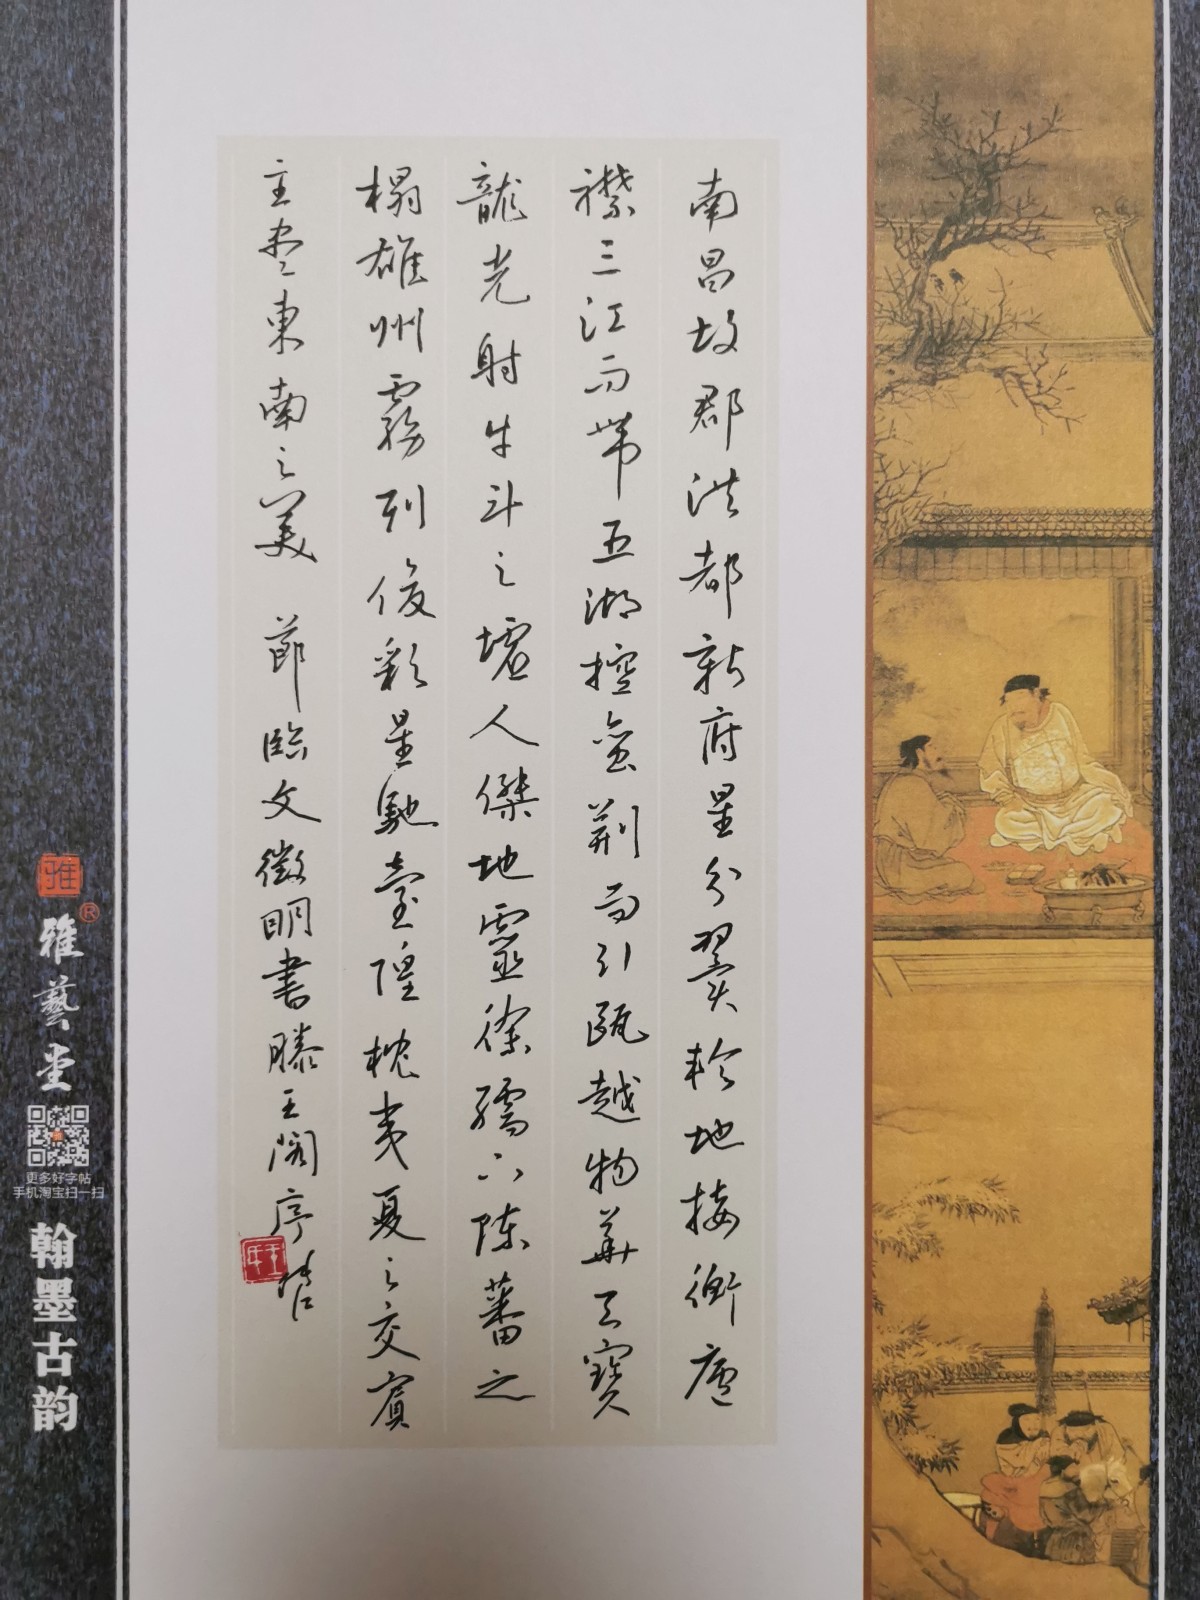 南昌故郡洪都新府星分翼軫地接衡廬
襟三江而帶五湖控蠻荆而引甌越物華天寶
龍光射牛斗之墟人傑地靈徐孺下陳蕃之
榻雄州霧列俊彩星馳臺隍枕夷夏之交賓
主盡東南之美 節臨文徵明書滕王閣序
雅
雅藝堂
®
更多好字帖
手机淘宝扫一扫
翰墨古韵